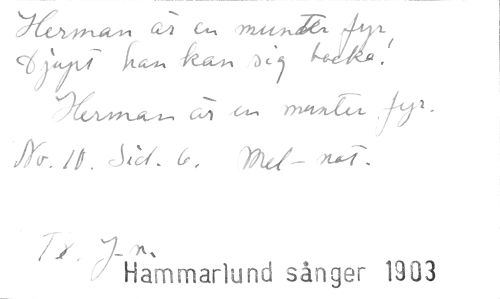 Herman är en munter fyr,
Djupt han kan sig bocka!
Herman är en munter fyr.
No. 10. Sid. 6. Mel-not.
J-n.
Hammarlund sånger 1903